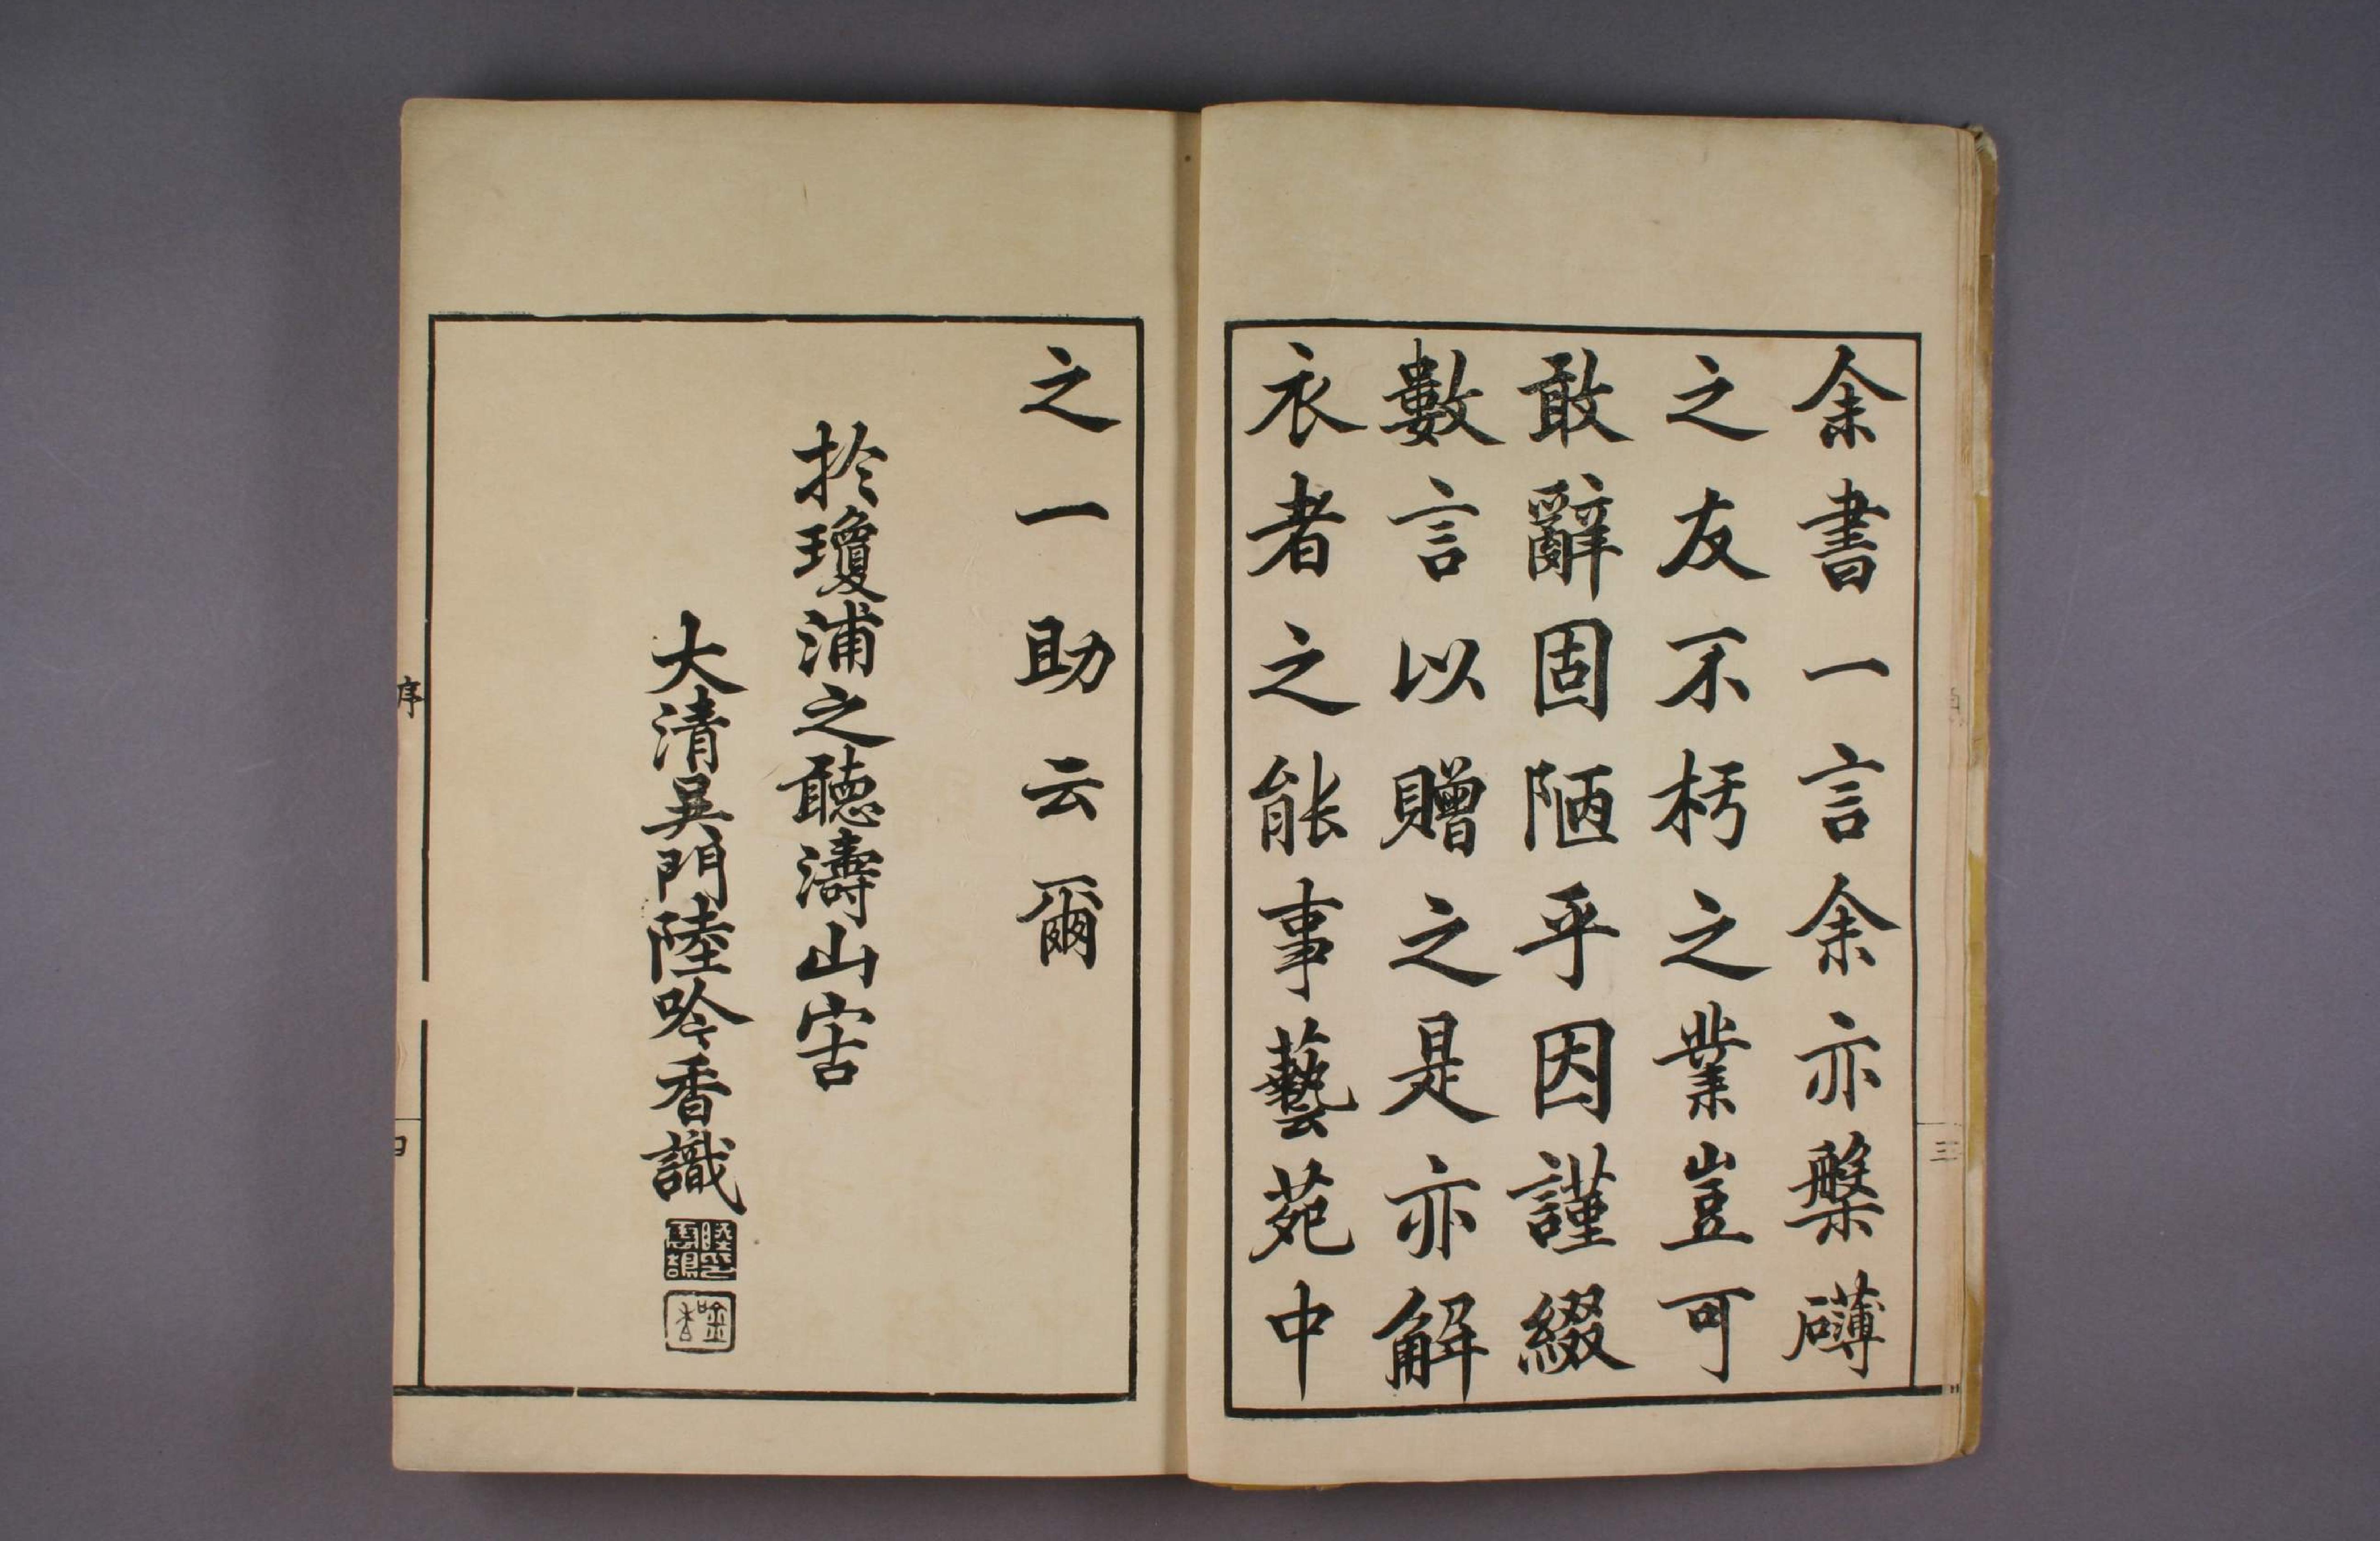 余書一言余亦槃礴
之友不朽之業豈可
敢辭固陋乎因謹綴
數言以贈之是亦解
衣者之能事藝苑中
三
之一助云爾
於瓊浦之聽濤山窖
大清吳門陸吟香識
序
四